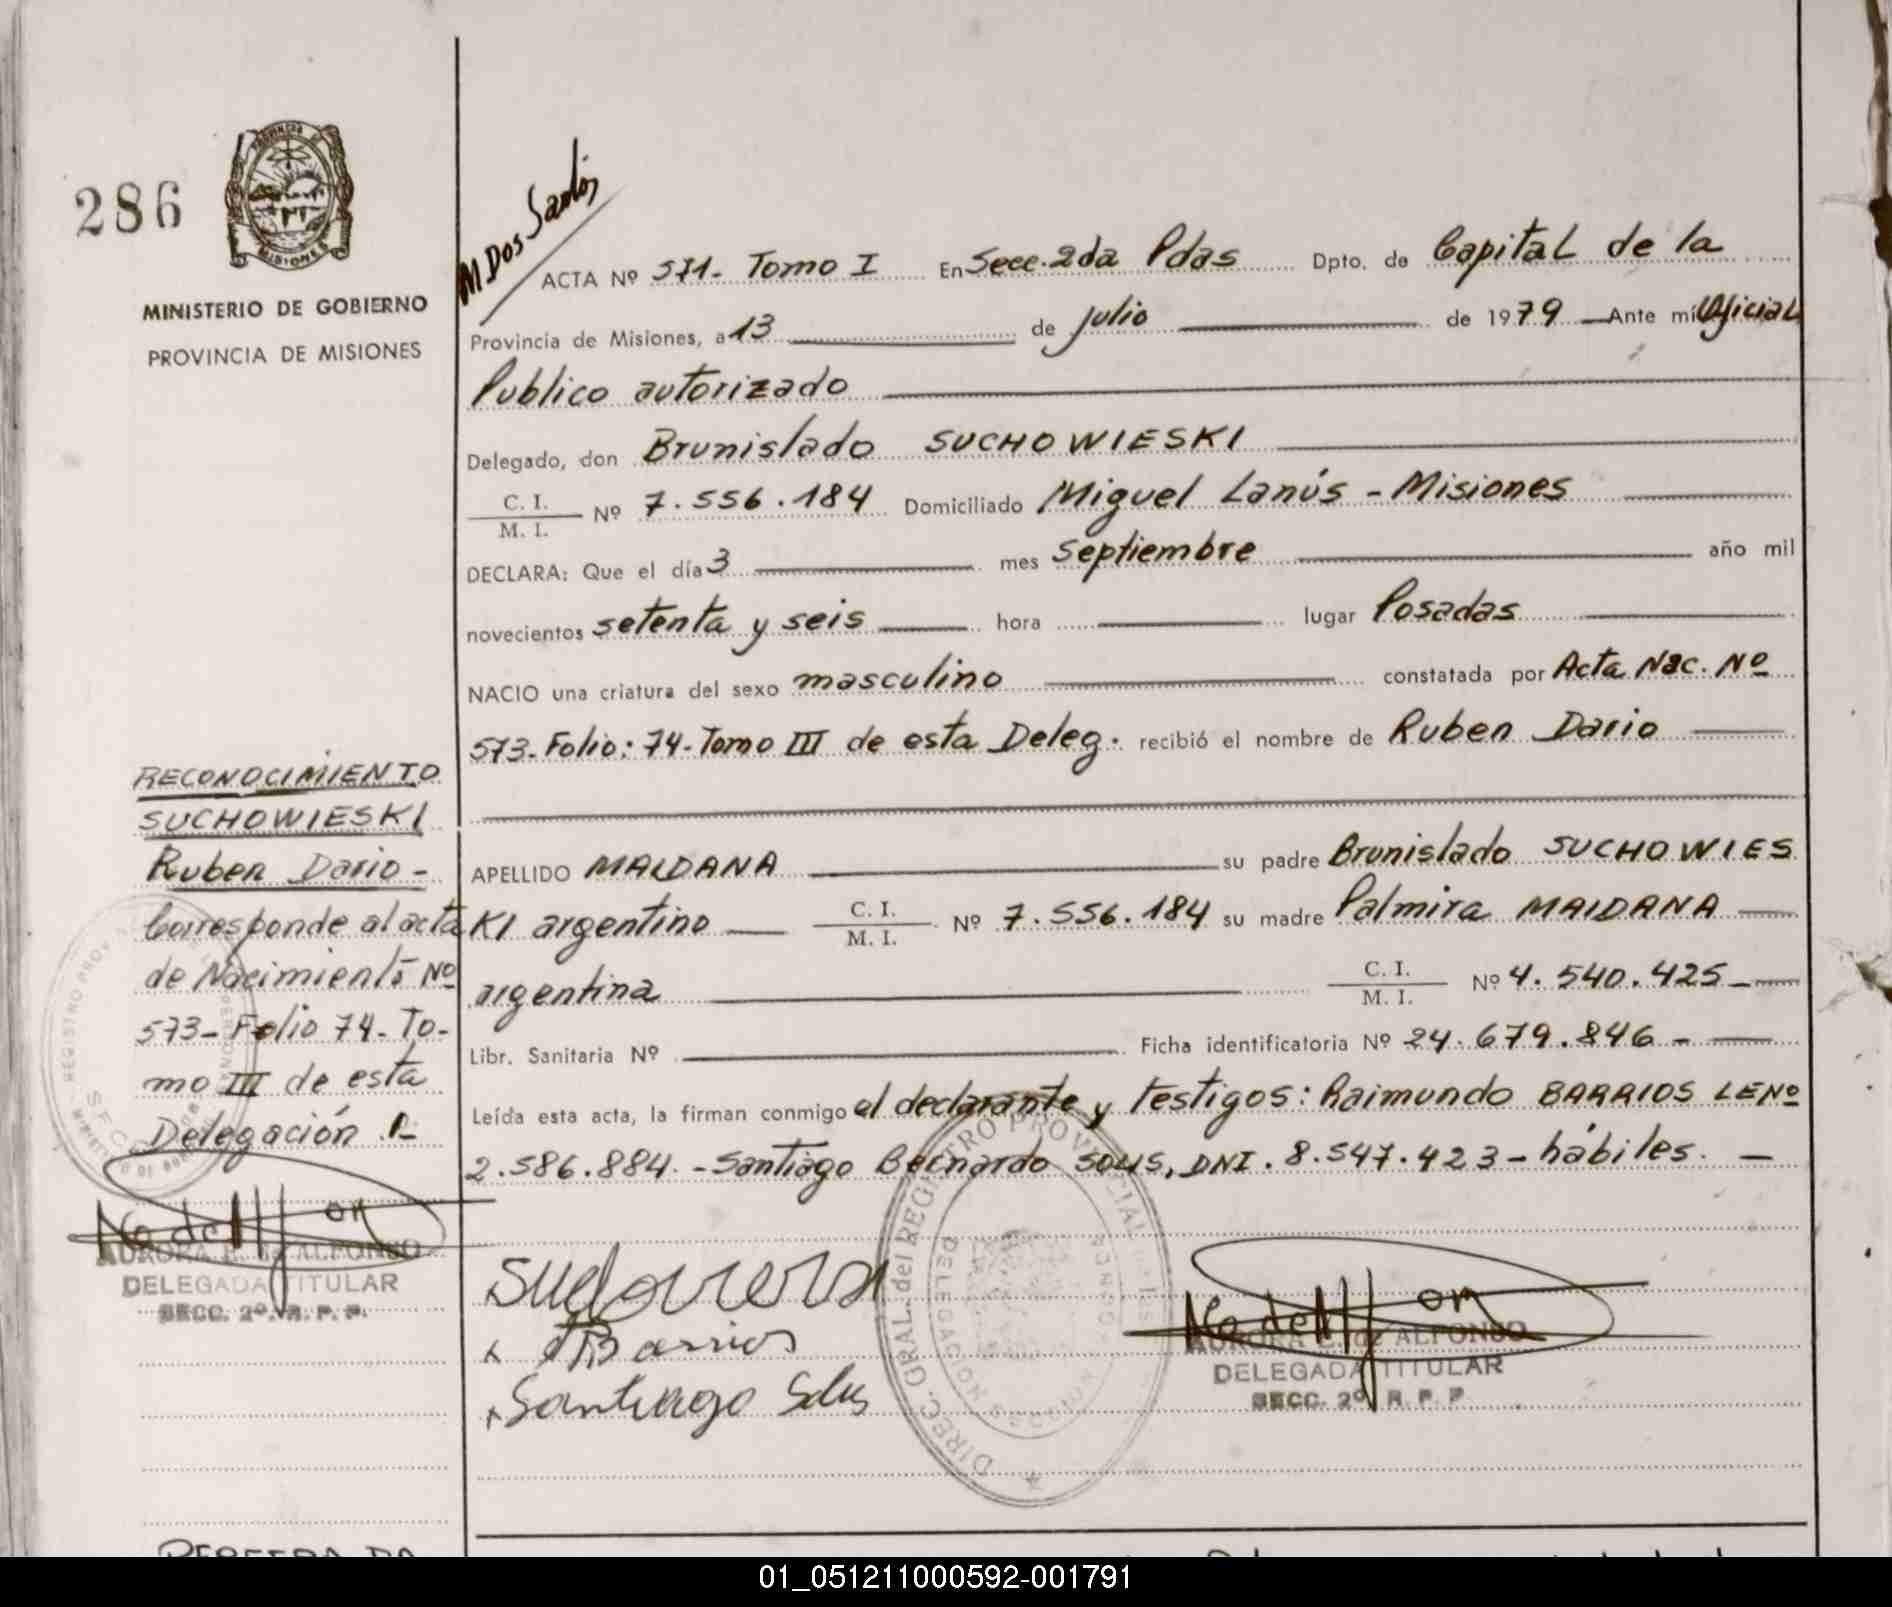 286
PROVINCIA DE
MISIONES
MINISTERIO DE GOBIERNO
PROVINCIA DE MISIONES
M Dos Santos
ACTA Nº 571- Tomo I En Secc. 2da Pdas Dpto. de Capital de la
Provincia de Misiones, a 13 de julio de 1979 Ante mí Oficial
Publico autorizado
Delegado, don Brunislado SUCHOWIESKI
C. I. / M. I. Nº 7.556.184 Domiciliado Miguel Lanús - Misiones
DECLARA: Que el día 3 mes septiembre año mil
novecientos setenta y seis hora lugar Posadas
NACIO una criatura del sexo masculino constatada por Acta Nac. Nº
573- Folio: 74- Tomo III de esta Deleg. recibió el nombre de Ruben Dario
APELLIDO MAIDANA su padre Brunislado SUCHOWIES
KI argentino C. I. / M. I. Nº 7.556.184 su madre Palmira MAIDANA
argentina C. I. / M. I. Nº 4.540.425-
Libr. Sanitaria Nº Ficha identificatoria Nº 24.679.846-
Leída esta acta, la firman conmigo el declarante y testigos: Raimundo BARRIOS LENº
2.586.884.- Santiago Bernardo SOLIS, DNI. 8.547.423- hábiles. -
RECONOCIMIENTO
SUCHOWIESKI
Ruben Dario-
Corresponde al acta
de Nacimiento Nº
573- Folio 74- To-
mo III de esta
Delegación
AURORA E. de ALFONSO
DELEGADA TITULAR
SECC. 2º. R. P. P.
x Barrios
x Santiago Solis
DIREC. GRAL. del REGISTRO PROVINCIAL
DELEGACION SECCION
AURORA E. de ALFONSO
DELEGADA TITULAR
SECC. 2º R. P. P.
01_051211000592-001791